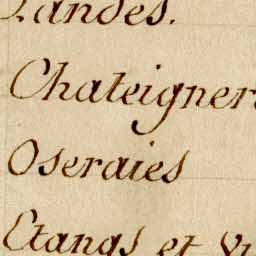 Landes.
Chateigner
Oseraies
Etangs et